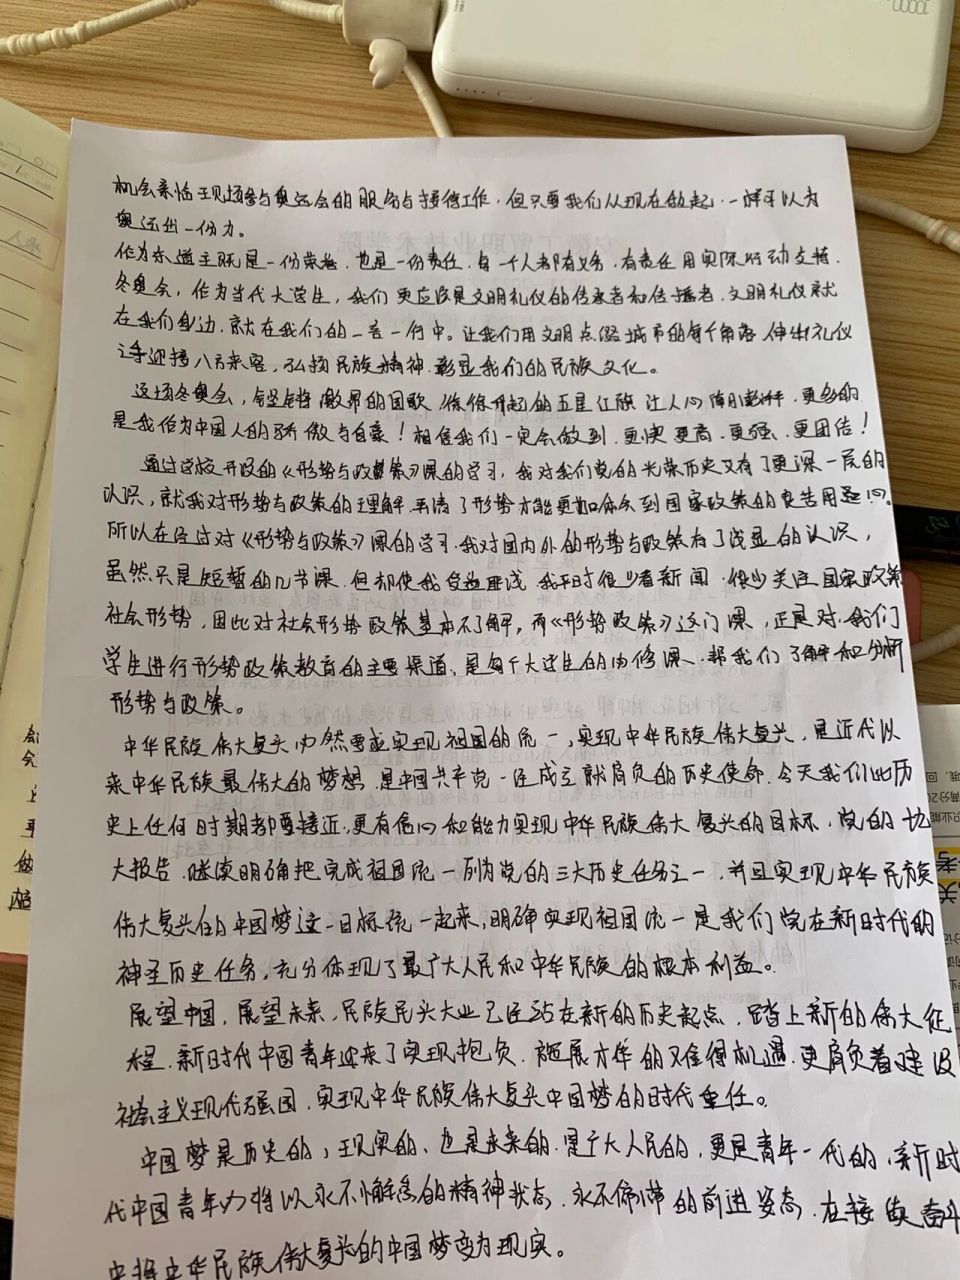 10000
机会亲临现场参与奥运会的服务与接待工作，但只要我们从现在做起，一样可以为
奥运出一份力。
作为东道主既是一份荣耀，也是一份责任，每一个人都有义务，有责任用实际行动支持
冬奥会，作为当代大学生，我们更应该是文明礼仪的传承者和传播者，文明礼仪就
在我们身边，就在我们的一言一行中。让我们用文明点缀城市的每个角落伸出礼仪
之手迎接八方来客，弘扬民族精神，彰显我们的民族文化。
这场冬奥会，铿锵激昂的国歌，徐徐升起的五星红旗让人心情澎湃，更多的
是我作为中国人的骄傲与自豪！相信我们一定会做到，更快更高、更强、更团结！
通过学校开设的《形势与政策》课的学习，我对我们党的光荣历史又有了更深一层的
认识，就我对形势与政策的理解，弄清了形势才能更加体会到国家政策的良苦用心。
所以在经过对《形势与政策》课的学习，我对国内外的形势与政策有了浅显的认识，
虽然只是短暂的几节课，但却使我受益匪浅，我平时很少看新闻，很少关注国家政策
社会形势，因此对社会形势政策基本不了解，而《形势政策》这门课，正是对我们
学生进行形势政策教育的主要渠道，是每个大学生的必修课，帮我们了解和分析
形势与政策。
中华民族伟大复兴必然要求实现祖国的统一，实现中华民族伟大复兴，是近代以
来中华民族最伟大的梦想，是中国共产党一经成立就肩负的历史使命，今天我们比历
史上任何时期都要接近，更有信心和能力实现中华民族伟大复兴的目标，党的十九
大报告，继续明确把完成祖国统一列为党的三大历史任务之一，并且实现中华民族
伟大复兴的中国梦这一目标统一起来，明确实现祖国统一是我们党在新时代的
神圣历史任务，充分体现了最广大人民和中华民族的根本利益。
展望中国，展望未来，民族民兴大业已经站在新的历史起点，踏上新的伟大征
程，新时代中国青年迎来了实现抱负、施展才华的难得机遇，更肩负着建设
社会主义现代强国，实现中华民族伟大复兴中国梦的时代重任。
中国梦是历史的，现实的、也是未来的，是广大人民的，更是青年一代的，新时
代中国青年必将以永不懈怠的精神状态，永不停滞的前进姿态，在接续奋斗
中将中华民族伟大复兴的中国梦变为现实。